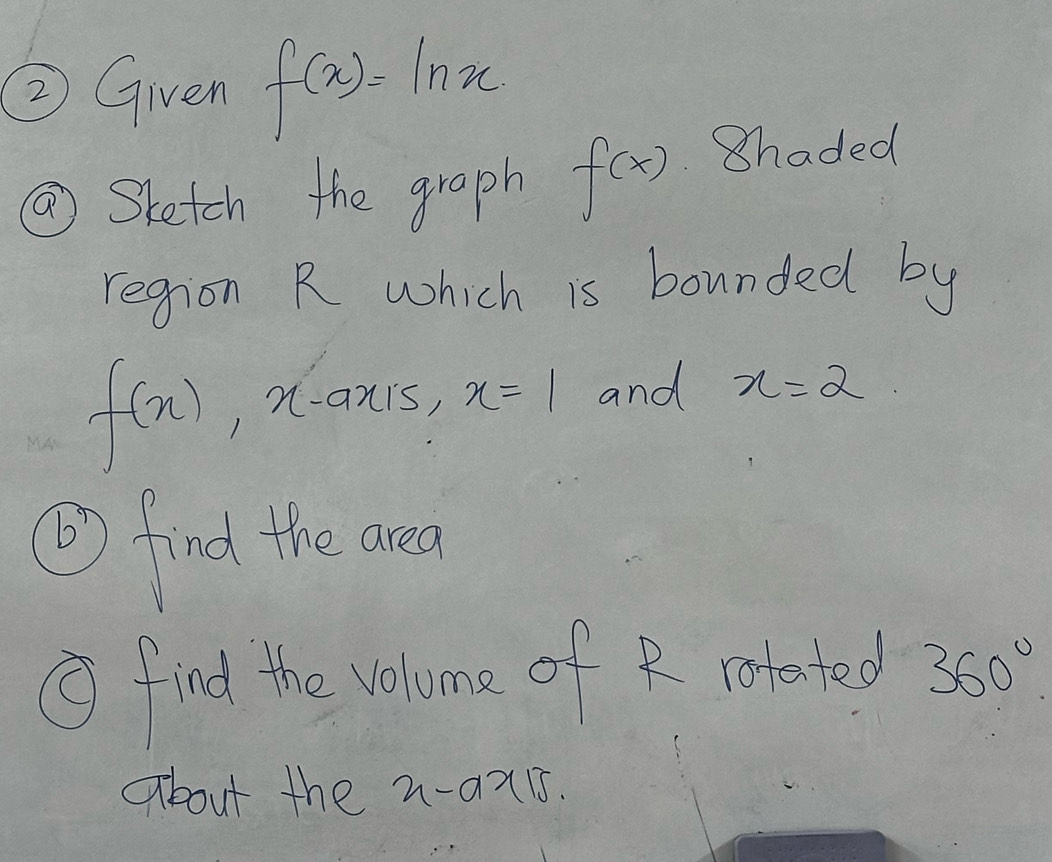 ② Given f(x)= ln x.
ⓐ Sketch the graph f(x). Shaded
region R which is bounded by
f(x), x-axis, x=1 and x=2.
ⓑ find the area
ⓒ find the volume of R rotated 360°
about the x-axis.